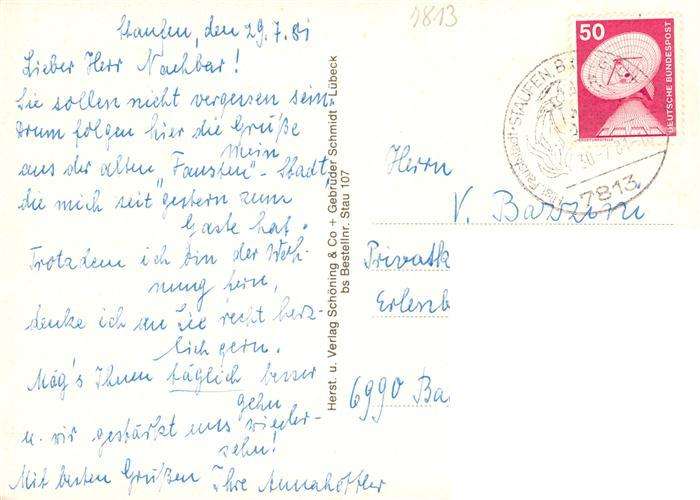 Staufen, den 29.7.81
Lieber Herr Nachbar!
Sie sollen nicht vergessen sein.
Drum folgen hier die Grüße
mein
aus der alten "Fausten"-Stadt,
die mich seit gestern zum
Gaste hat.
Trotzdem ich bin der Woh-
nung fern,
denke ich an Sie recht herz-
lich gern.
Mög's Ihnen täglich besser
gehn
u. wir gestärkt uns wieder-
sehn!
Mit besten Grüßen Ihre
Herst. u. Verlag Schöning & Co + Gebrüder Schmidt - Lübeck
bs Bestellnr. Stau 107
1813
50
DEUTSCHE BUNDESPOST
STAUFEN,
7813
Herrn
V.
Privatk
Erlenb
6990 Ba